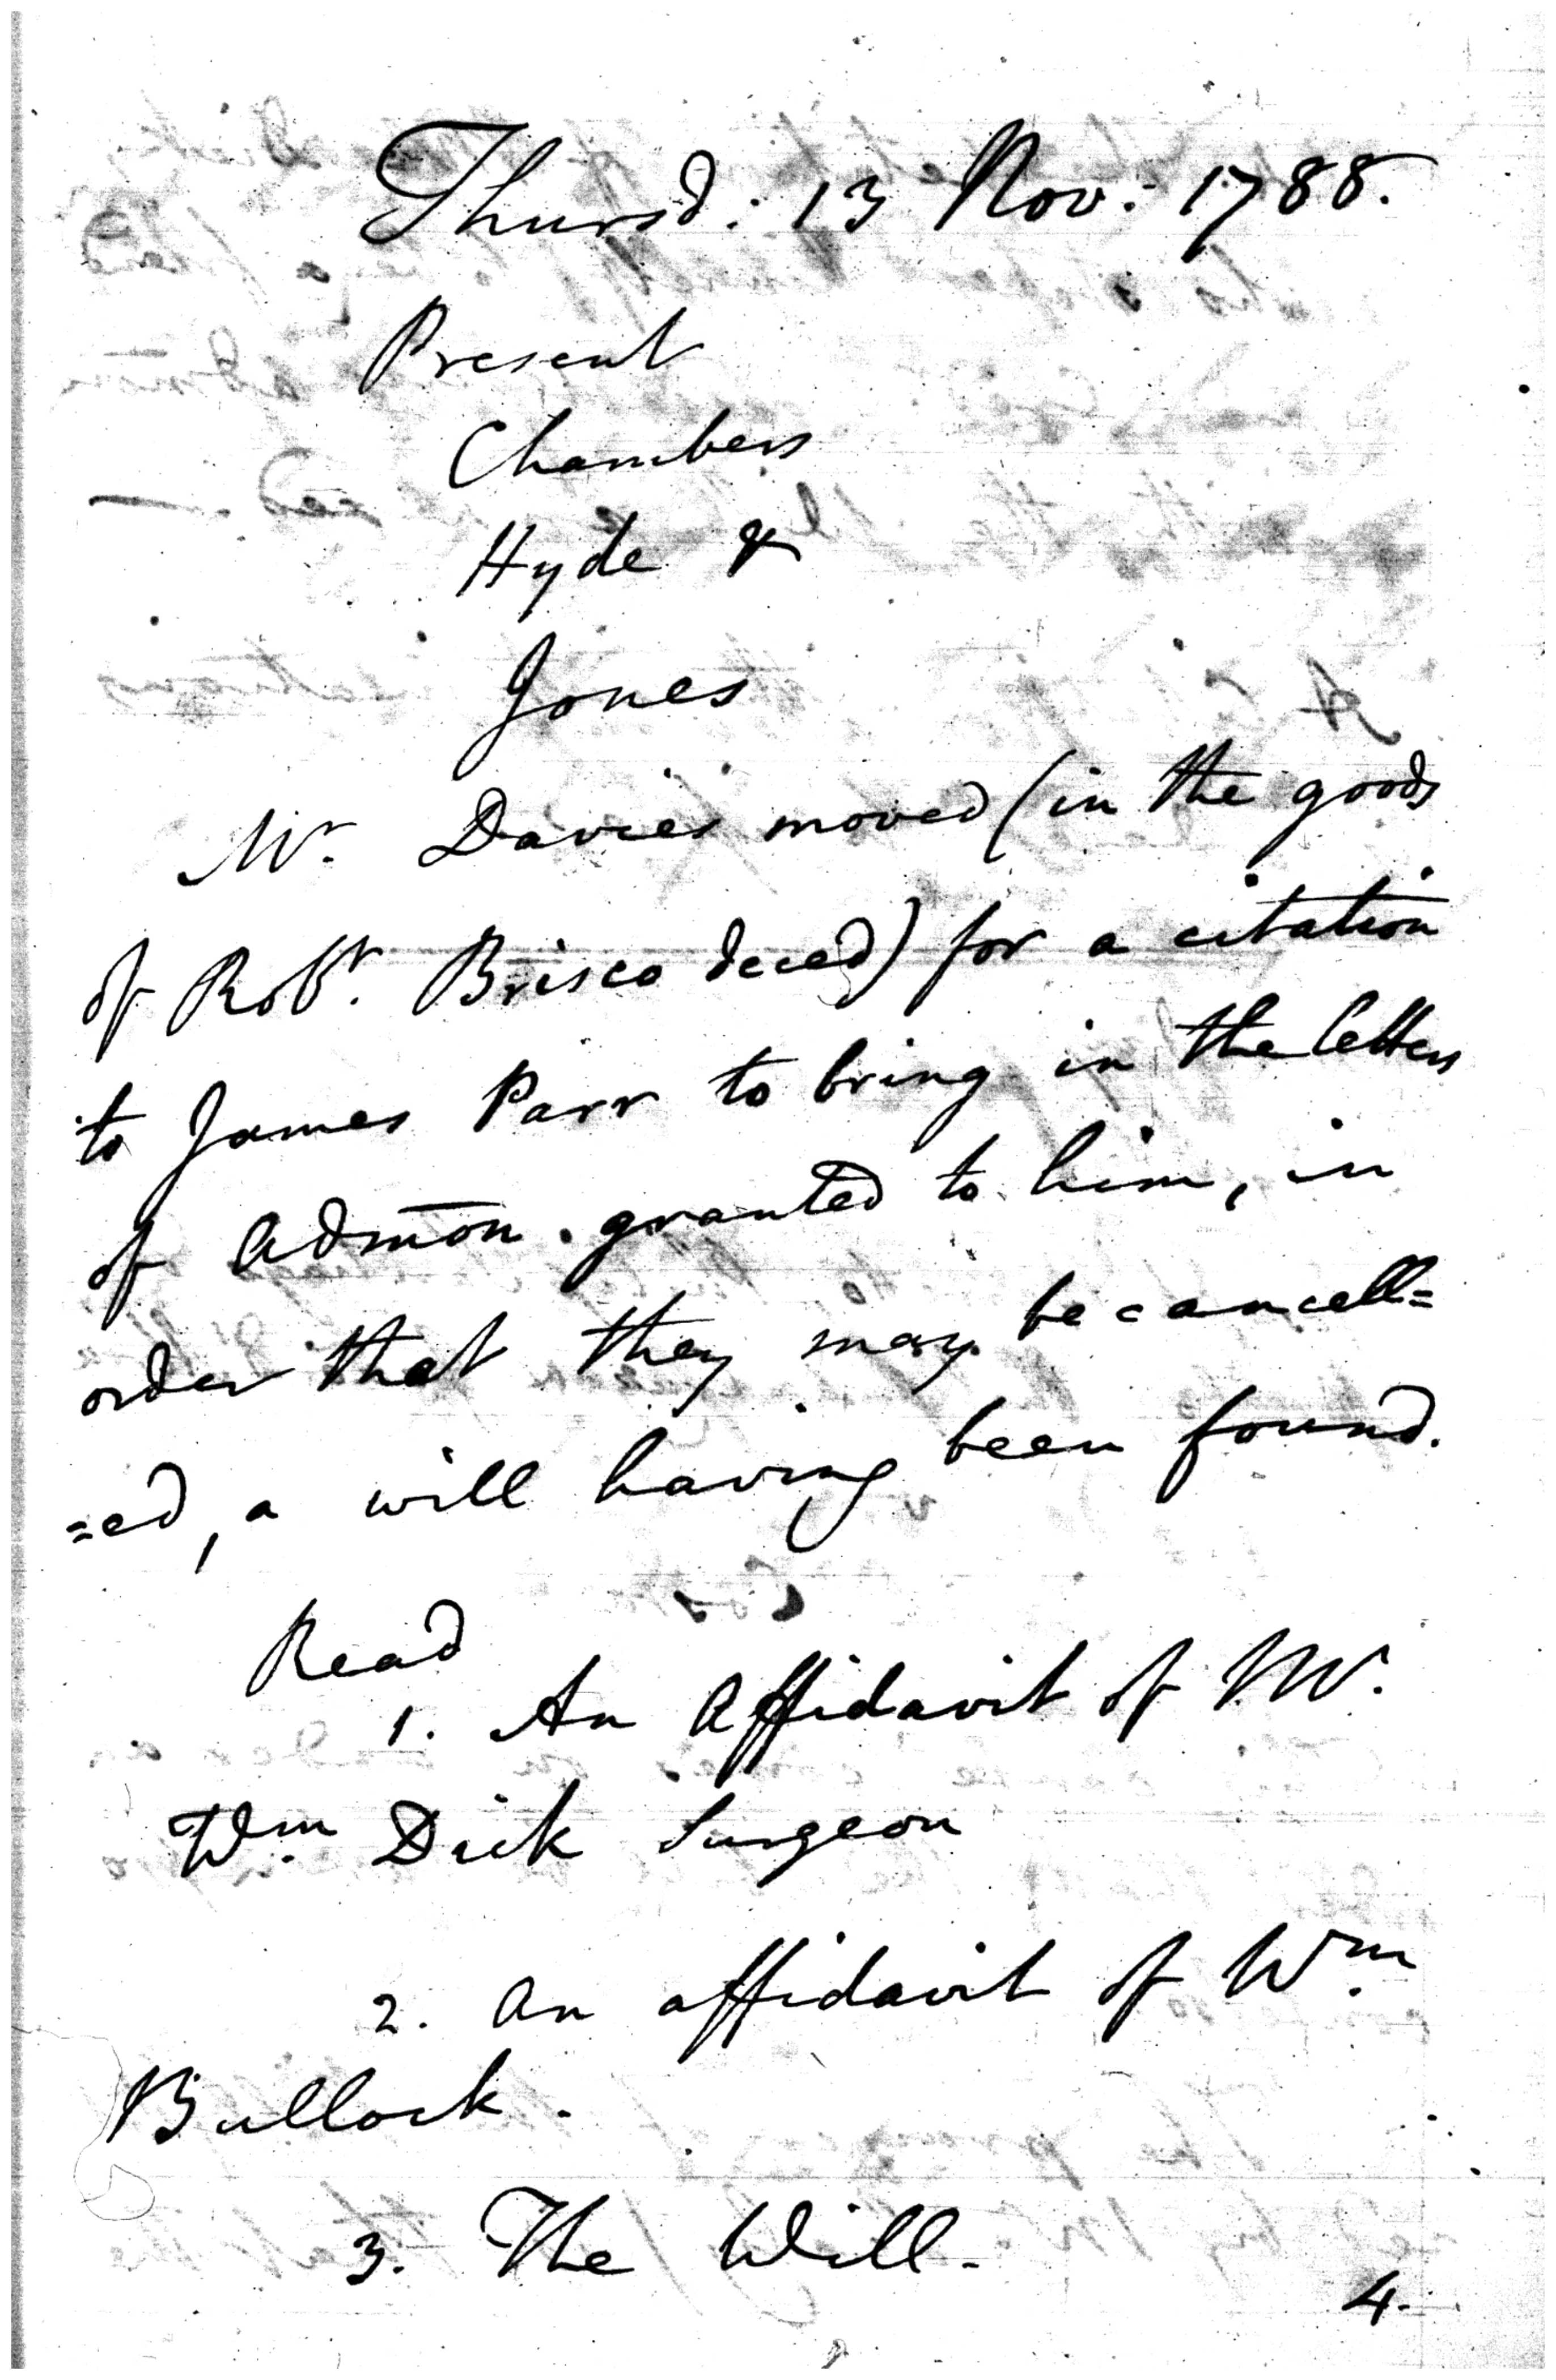 Thursd: 13 Nov: 1788.
Present
Chambers
Hyde &
Jones
Mr. Davies moved (in the goods
of Robt. Brisco deced) for a citation
to James Parr to bring in the letters
of Admōn. granted to him, in
order that they may be cancell=
=ed, a will having been found.
Read
1. An Affidavit of Mr.
Wm. Dick Surgeon
2. An affidavit of Wm.
Bullock.
3. The Will.
4.